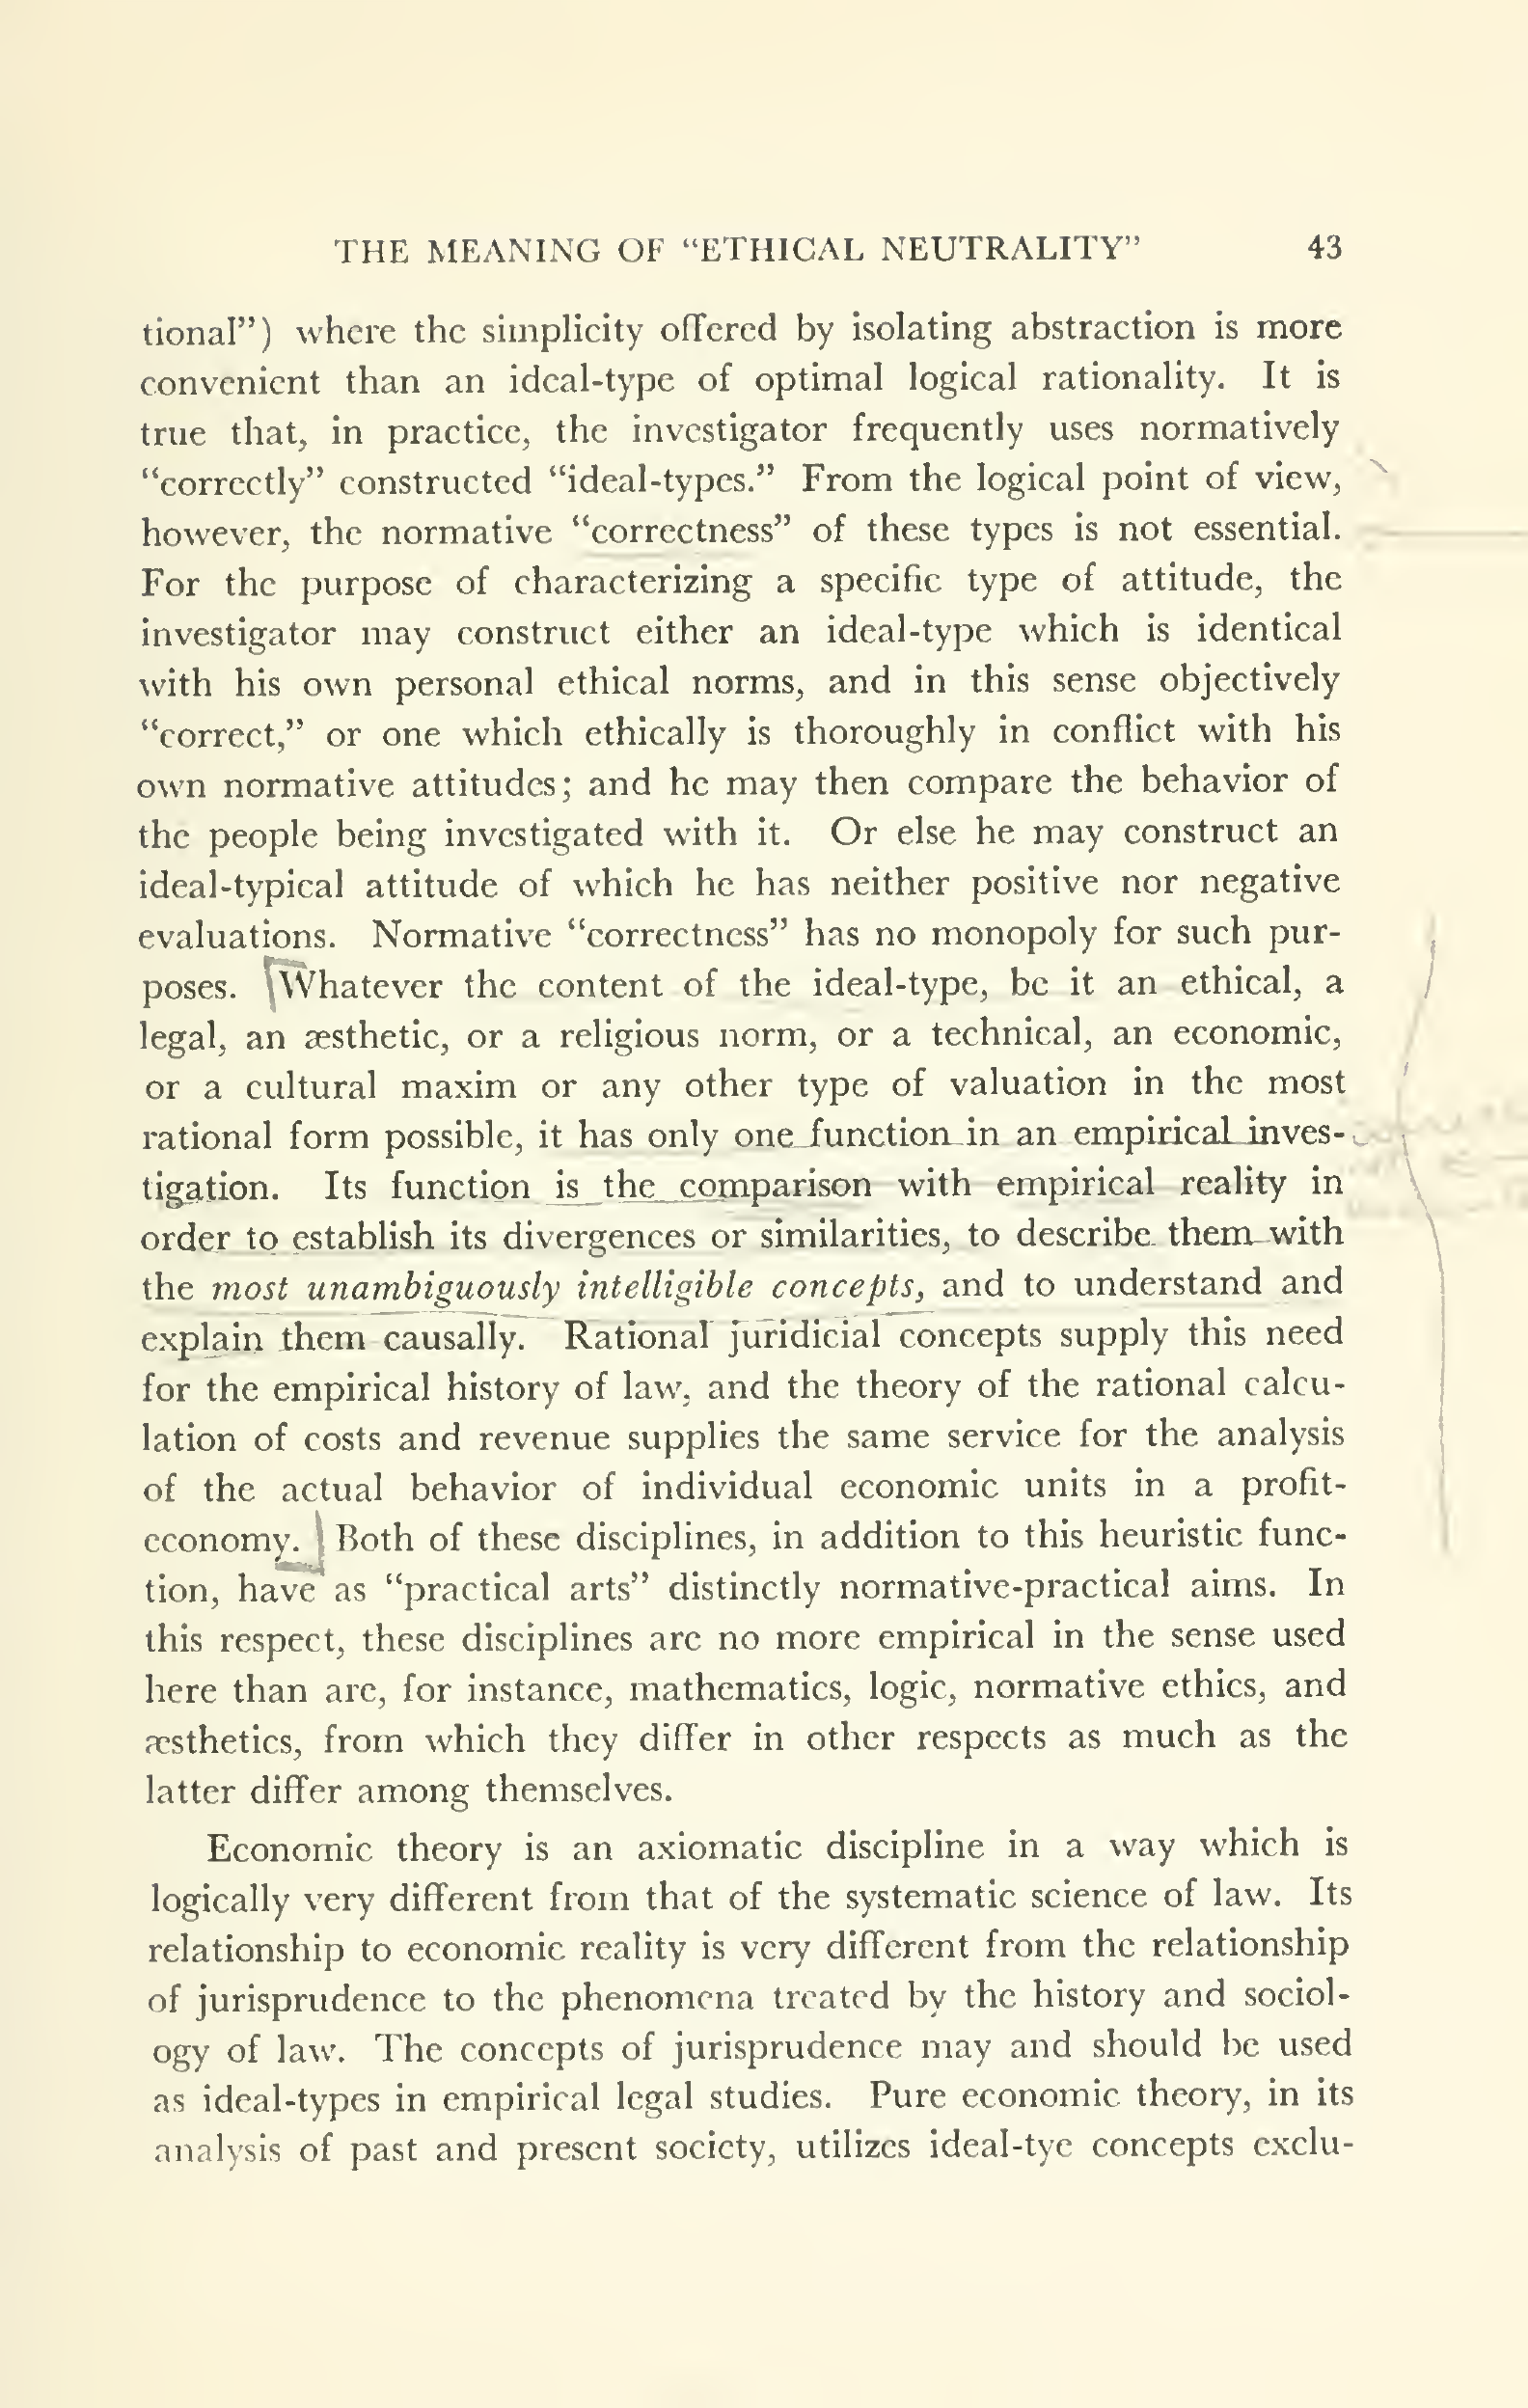 THE MEANING OF “ETHICAL NEUTRALITY” 43
tional”) where the simplicity offered by isolating abstraction is more
convenient than an ideal-type of optimal logical rationality. It is
true that, in practice, the investigator frequently uses normatively
“correctly” constructed “ideal-types.” From the logical point of view,
however, the normative “correctness” of these types is not essential.
For the purpose of characterizing a specific type of attitude, the
investigator may construct either an ideal-type which is identical
with his own personal ethical norms, and in this sense objectively
“correct,” or one which ethically is thoroughly in conflict with his
own normative attitudes; and he may then compare the behavior of
the people being investigated with it. Or else he may construct an
ideal-typical attitude of which he has neither positive nor negative
evaluations. Normative “correctness” has no monopoly for such pur-
poses. Whatever the content of the ideal-type, be it an ethical, a
legal, an æsthetic, or a religious norm, or a technical, an economic,
or a cultural maxim or any other type of valuation in the most
rational form possible, it has only one function in an empirical inves-
tigation. Its function is the comparison with empirical reality in
order to establish its divergences or similarities, to describe them with
the most unambiguously intelligible concepts, and to understand and
explain them causally. Rational juridicial concepts supply this need
for the empirical history of law, and the theory of the rational calcu-
lation of costs and revenue supplies the same service for the analysis
of the actual behavior of individual economic units in a profit-
economy. Both of these disciplines, in addition to this heuristic func-
tion, have as “practical arts” distinctly normative-practical aims. In
this respect, these disciplines are no more empirical in the sense used
here than are, for instance, mathematics, logic, normative ethics, and
æsthetics, from which they differ in other respects as much as the
latter differ among themselves.
Economic theory is an axiomatic discipline in a way which is
logically very different from that of the systematic science of law. Its
relationship to economic reality is very different from the relationship
of jurisprudence to the phenomena treated by the history and sociol-
ogy of law. The concepts of jurisprudence may and should be used
as ideal-types in empirical legal studies. Pure economic theory, in its
analysis of past and present society, utilizes ideal-tye concepts exclu-